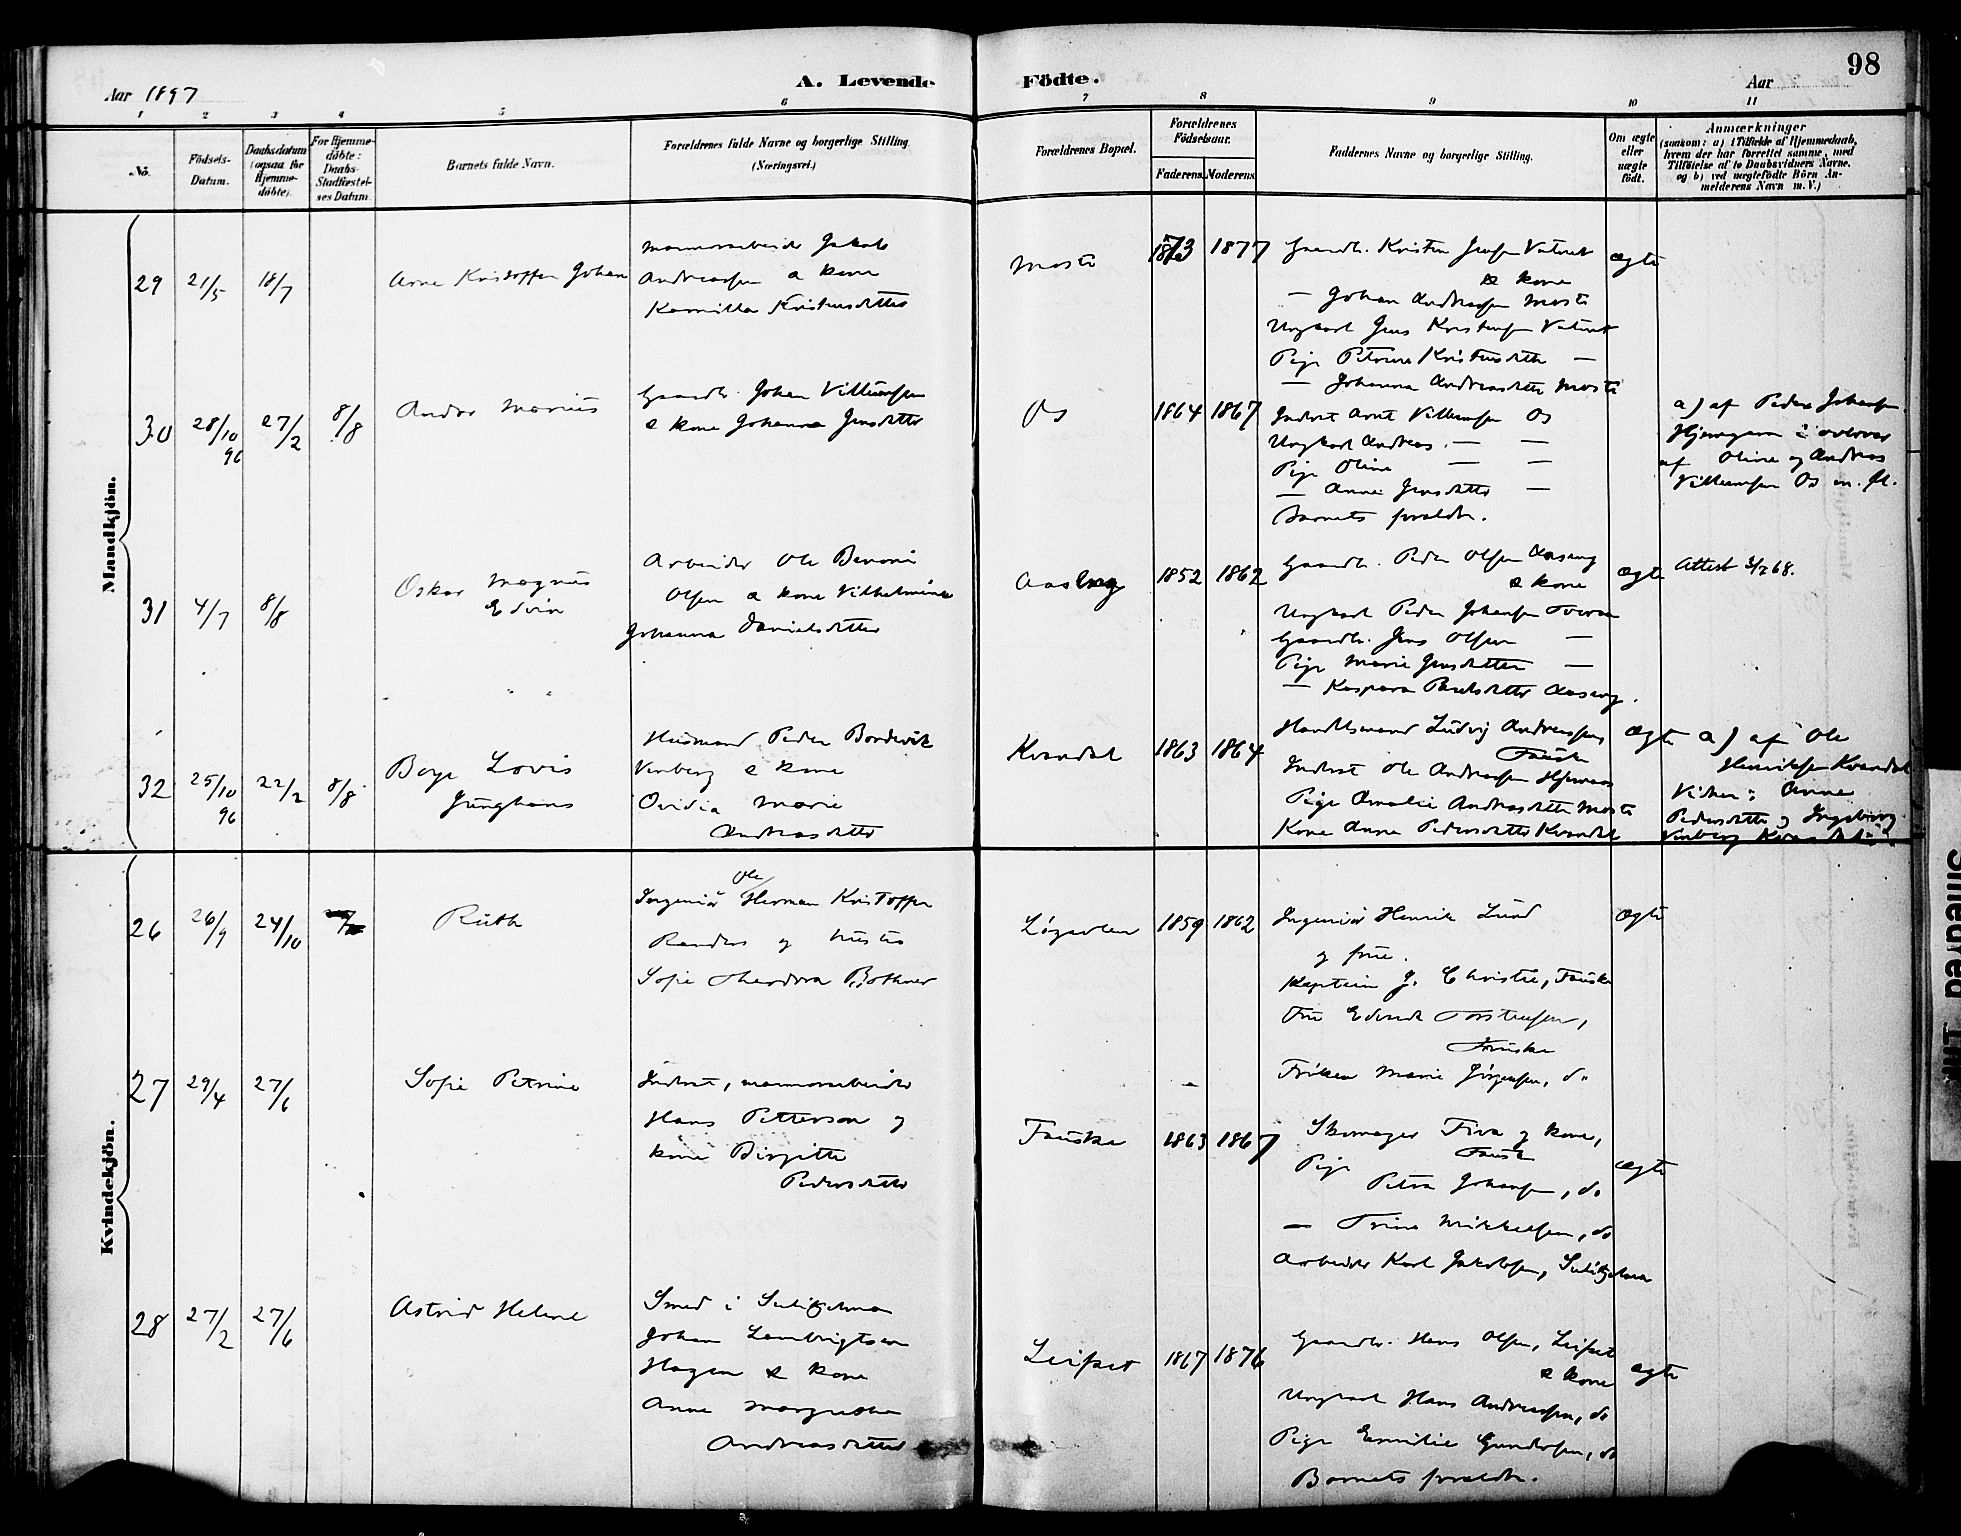 98
Aar 1897
A. Levende Födte.
Aar
1 2 3 4 5 6 7 8 9 10 11
No.
Födsels-
Datum.
Daabsdatum
(ogsaa for
Hjemme-
döbte).
For Hjemme-
döbte:
Daabs-
Stadfæstel-
ses Datum
Barnets fulde Navn.
Forældrenes fulde Navne og borgerlige Stilling
(Næringsvei.)
Forældrenes Bopæl.
Forældrenes
Födselsaar.
Faderens Moderens
Faddernes Navne og borgerlige Stilling.
Om ægte
eller
uægte
födt.
Anmærkninger
(saasom: a) i Tilfælde af Hjemmedaab,
hvem der har forrettet samme, med
Tilföielse af to Daabsvidners Navne,
og b) ved uægtefödte Börn An-
melderens Navn m. V.)
Mandkjön.
29 21/5 18/7
Arne Kristoffer Johan
Andreassen & kone
Kamilla Kristensdatter
1873 1877
Gaardb. Kristen Jensen
& kone
— Johan Andreassen
Ungkarl Jens Kristensen
Pige Petrine Kristensdatter —
— Johanna Andreasdatter
ægte
30 28/10 96 27/2 8/8
Andor Marius
Gaardb. Johan Villumsen
& kone Johanna Jensdatter
Os
1864 1867
Inderst Arnt Villumsen Os
Ungkarl Andreas — —
Pige Oline — —
— Anna Jensdatter —
Barnets forældre.
a) af Peder Johansen
af Oline og Andreas
Villumsen Os m. fl.
31 4/7 8/8
Oskar Magnus
Edvin
Arbeider Ole
Olsen & kone Vilhelmine
Johanna Danielsdatter
1852 1862
Gaardb. Peder Olsen
& kone
Ungkarl Peder Johansen
Gaardb. Jens Olsen —
Pige Marie Jensdatter —
— Kaspara
ægte
Attest 3/7 68.
32 25/10 96 22/2 8/8
Boye Lovis
Junghans
Husmand Peder Bordevik
Vinberg & kone
Ovidia Marie
Andreasdatter
Kvandal
1863 1864
Handelsmand Ludvig Andreassen,
Fauske
Inderst Ole Andreassen
Pige Amalie Andreasdatter
Kone Anna Pedersdatter Kvandal
ægte
a) af Ole
Henriksen Kvandal
Vidner: Anne
Pedersdatter og Ingeborg
Vinberg
Kvindekjön.
26 26/9 24/10
Ruth
Ole
Ingeniör Herman Kristoffer
Randers og hustru
Sofie Theodora Bothner
1859 1862
Ingeniör Henrik Lund
og frue.
Kaptein J. Christie, Fauske
Fru Torstensen,
Fauske
Fröken Marie Jörgensen, do
ægte
27 29/4 27/6
Sofie Petrine
Inderst, marmorarbeider
Hans Petterson og
kone Birgitte
Pedersdatter
Fauske
1863 1867
Skomager og kone,
Fauske
Pige
Petra Johansen, do
— Trine Mikkelsen, do
Arbeider Karl Jakobsen, Sulitjelma
ægte
28 27/2 27/6
Astrid Helene
Smed i Sulitjelma
Johan
Hagen & kone
Anne Margrethe
Andreasdatter
Leifset
1867 1876
Gaardb. Hans Olsen, Leifset
& kone
Ungkarl Hans Andreassen, do
Pige Emilie Gundersen, do
Barnets forældre.
ægte